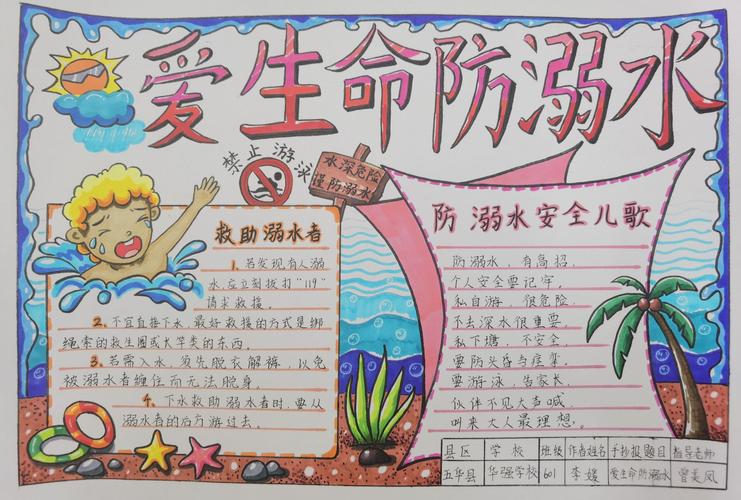 爱生命防溺水
禁止游泳
水深危险
谨防溺水
救助溺水者
1、若发现有人溺
水,应立刻拔打"119"
请求救援。
2、不宜直接下水,最好救援的方式是绑
绳索的救生圈或长竿类的东西。
3、若需入水,须先脱衣解裤,以免
被溺水者缠住而无法脱身。
4、下水救助溺水者时,要从
溺水者的后方游过去。
防溺水安全儿歌
防溺水,有高招,
个人安全要记牢。
私自游,很危险,
不去深水很重要。
私下塘,不安全,
要防头昏与痉挛。
要游泳,告家长,
伙伴不见大声喊,
叫来大人最理想。
县区 学校 班级 作者姓名 手抄报题目 指导老师
五华县 华强学校 601 李媛 爱生命防溺水 曾美凤